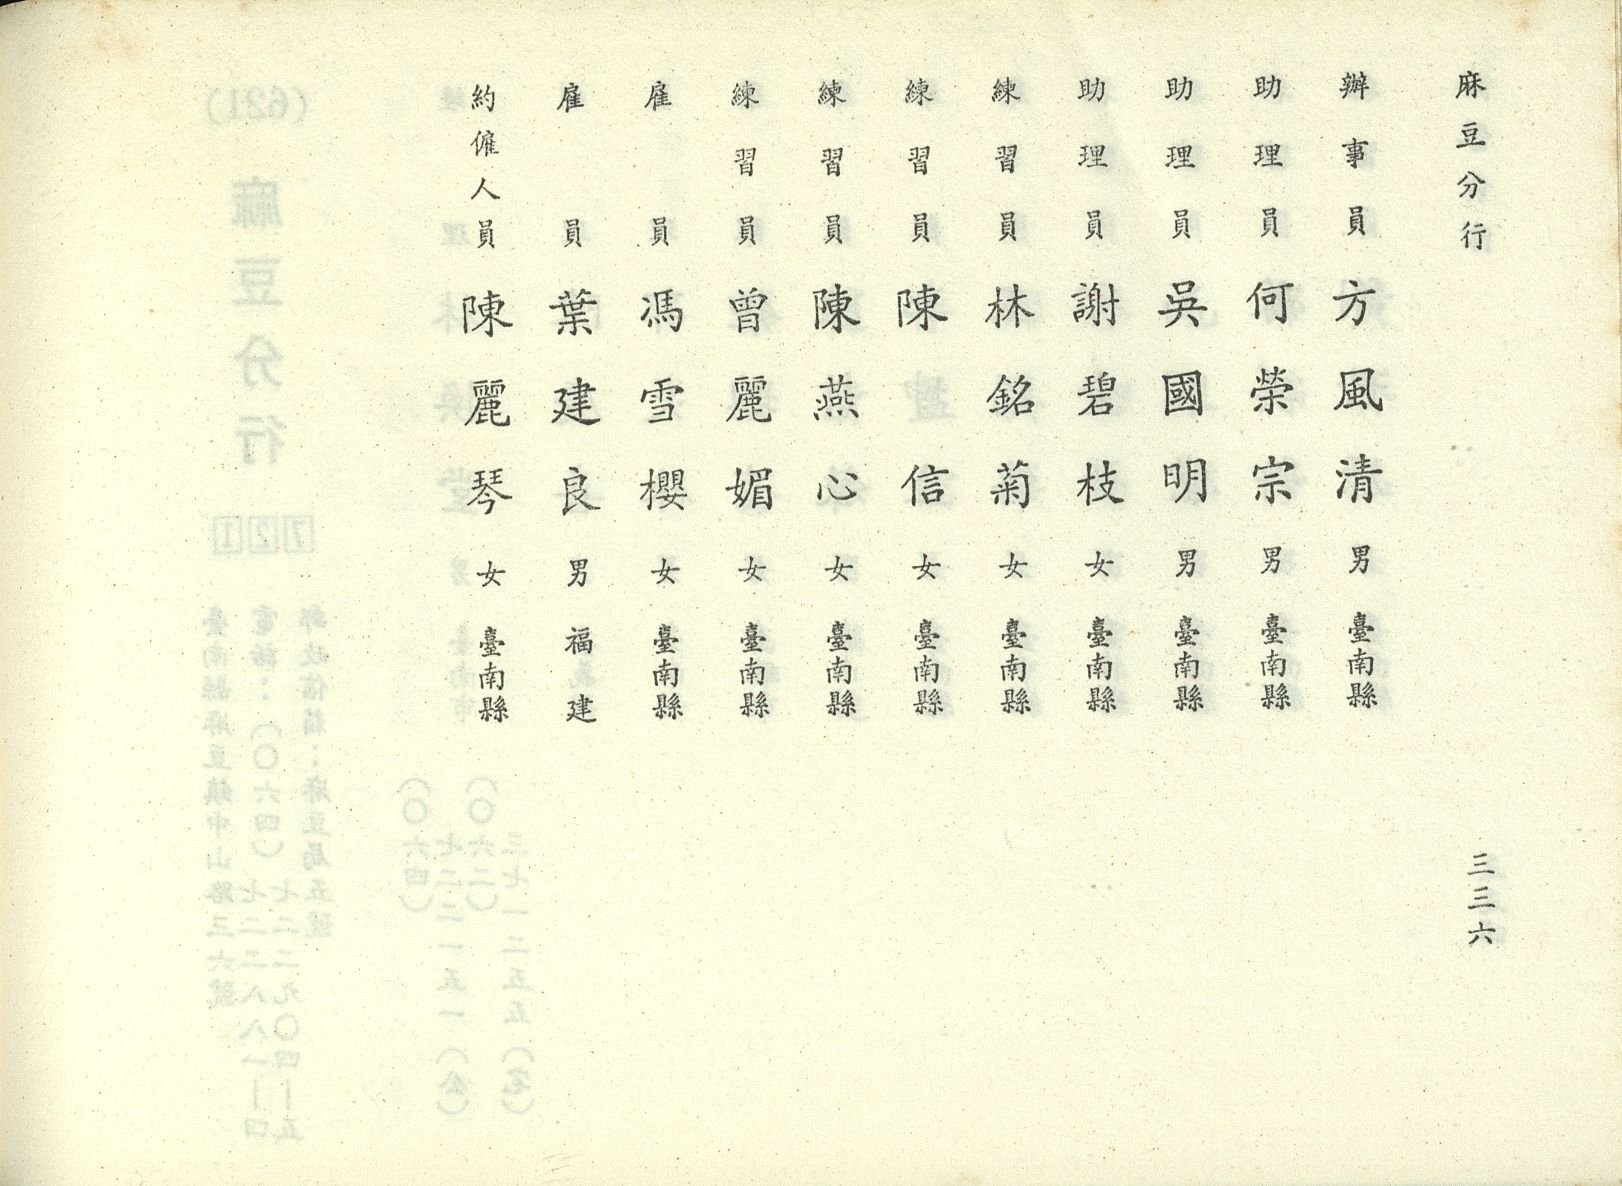 麻豆分行
三三六
辦事員 方風清 男 臺南縣
助理員 何榮宗 男 臺南縣
助理員 吳國明 男 臺南縣
助理員 謝碧枝 女 臺南縣
練習員 林銘菊 女 臺南縣
練習員 陳信 女 臺南縣
練習員 陳燕心 女 臺南縣
練習員 曾麗媚 女 臺南縣
雇員 馮雪櫻 女 臺南縣
雇員 葉建良 男 福建
約僱人員 陳麗琴 女 臺南縣